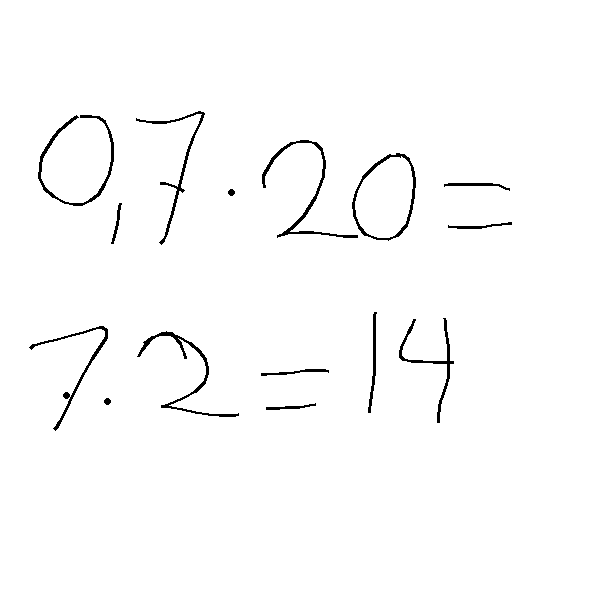 0,7 · 20 =
7 · 2 = 14